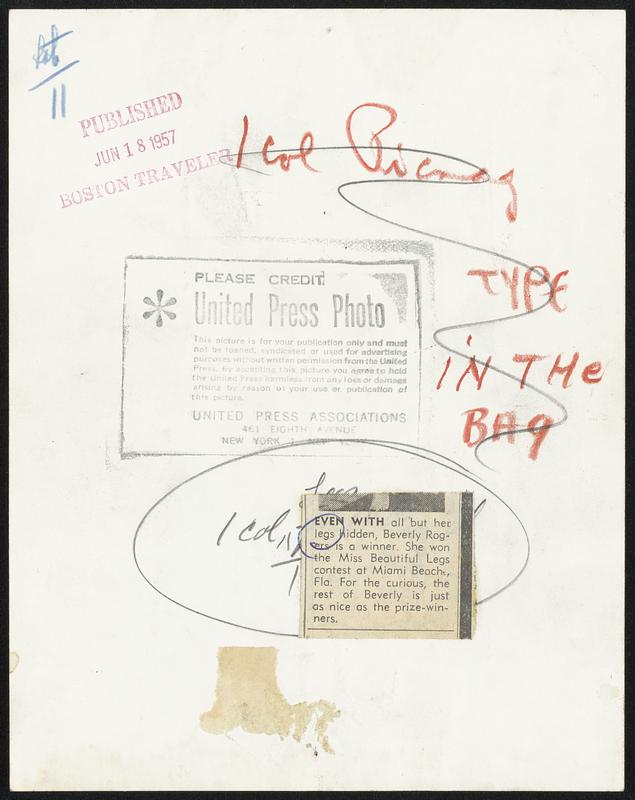 11
PUBLISHED
JUN 18 1957
BOSTON TRAVELER
1 col
TYPE
IN THE
BAG
PLEASE CREDIT
United Press Photo
This picture is for your publication only and must
not be loaned, syndicated or used for advertising
purposes without written permission from the United
Press. By accepting this picture you agree to hold
the United Press harmless from any loss or damage
arising by reason of your use or publication of
this picture.
UNITED PRESS ASSOCIATIONS
461 EIGHTH AVENUE
NEW YORK 1, NEW YORK
Legs
1 col
EVEN WITH all but her
legs hidden, Beverly Rog-
ers is a winner. She won
the Miss Beautiful Legs
contest at Miami Beach,
Fla. For the curious, the
rest of Beverly is just
as nice as the prize-win-
ners.